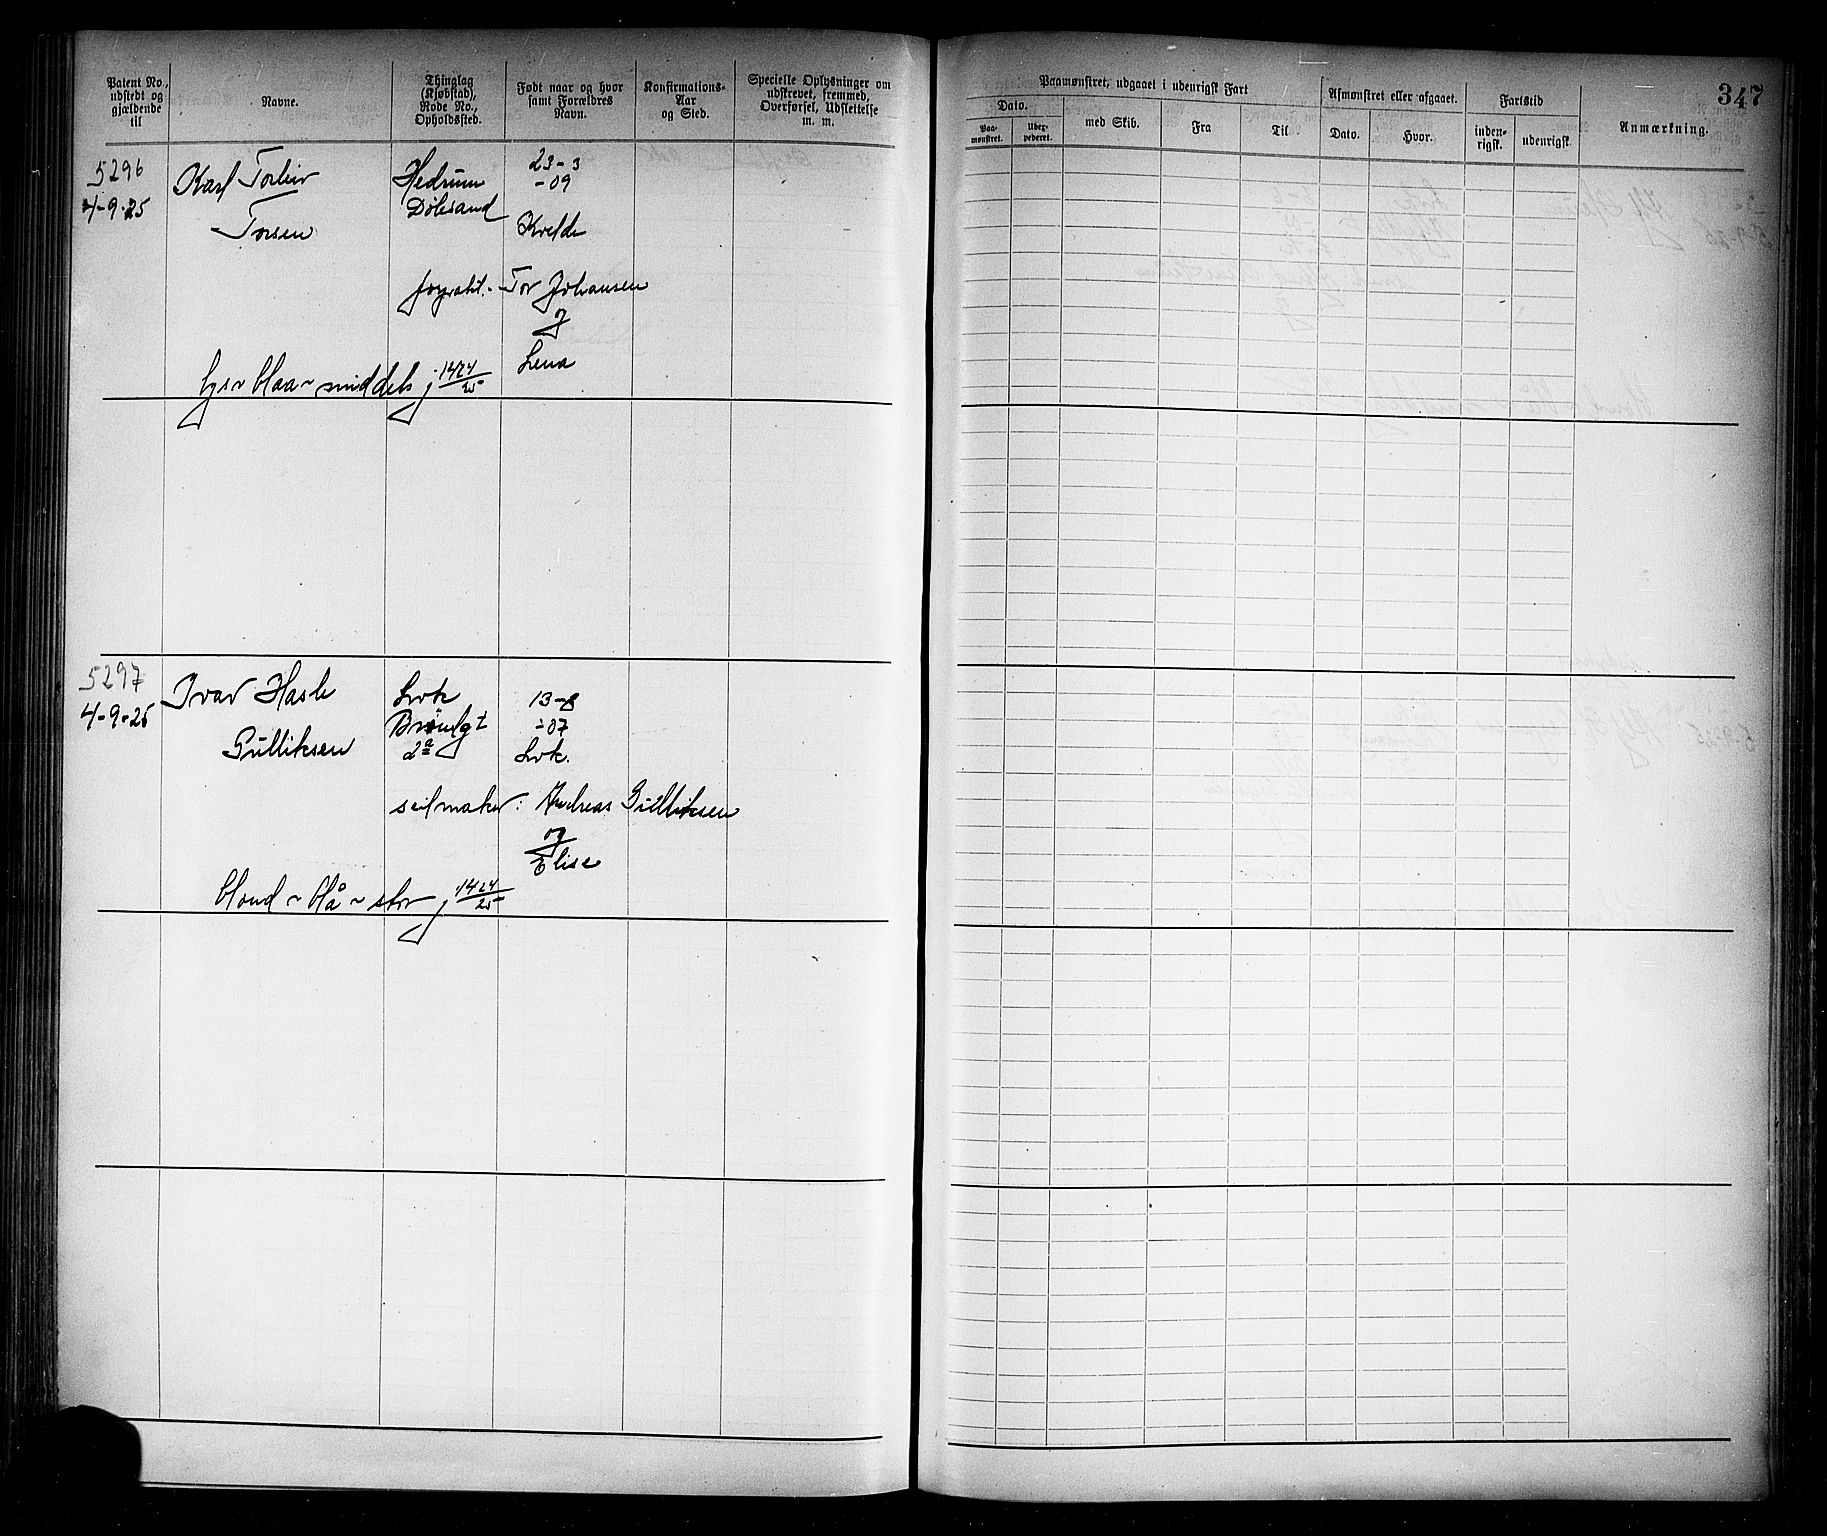 Patent No., udstedt og gjældende til
Navne.
Thinglag (Kjøbstad), Rode No., Opholdssted.
Født naar og hvor samt Forældres Navn.
Konfirmations-Aar og Sted.
Specielle Oplysninger om udskrevet, fremmed, Overførsel, Udslettelse m. m.
Paamønstret, udgaaet i udenrigsk Fart
Dato.
Paa-mønstret.
med Skib.
Fra
Til
Afmønstret eller afgaaet.
Dato.
Hvor.
Fartstid
inden-rigsk.
udenrigsk
Anmærkning.
347
5296
4-9-25
Karl Torleiv
Torsen
Hedrum
23-3
-09
Kvelde
Tor Johansen
og
Lena
lys ~ blaa ~ middels
5297
4-9-25
Ivar Hasle
Gulliksen
Lvk
2a
13-8
-07
Lvk.
seilmaker: Andreas Gulliksen
og
Elise
blond ~ blå ~ stor